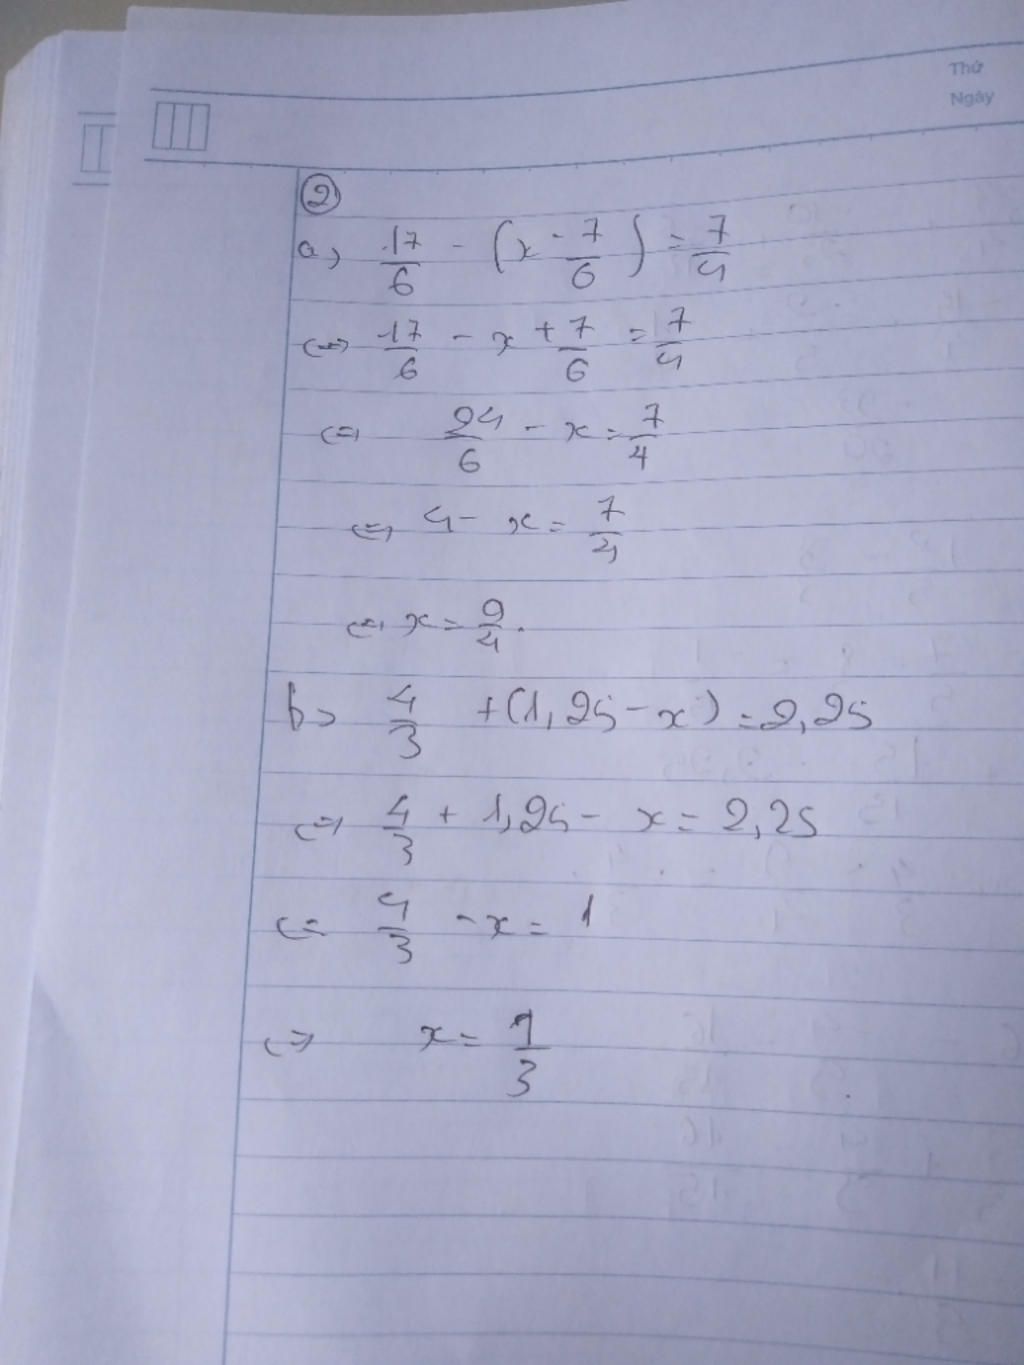 Thứ
Ngày
②
a) 17/6 - (x - 7/6) = 7/4
⇔ 17/6 - x + 7/6 = 7/4
⇔ 24/6 - x = 7/4
⇔ 4 - x = 7/4
⇔ x = 9/4.
b) 4/3 + (1,25 - x) = 2,25
⇔ 4/3 + 1,25 - x = 2,25
⇔ 4/3 - x = 1
⇔ x = 1/3